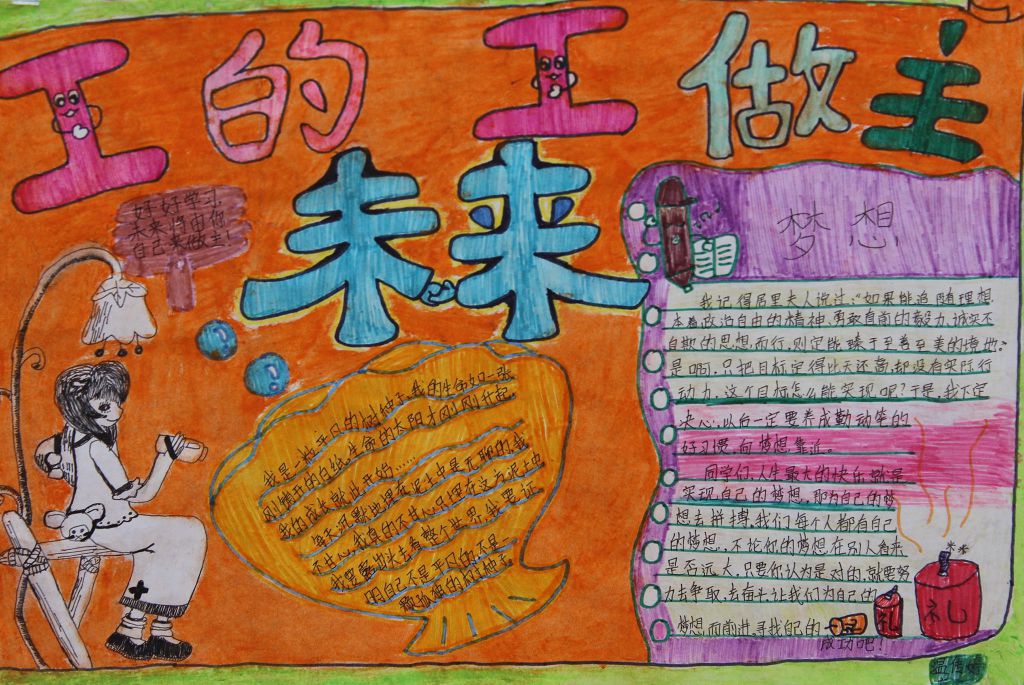 工的工做主
未来
好好学习,
未来将由你
自己来做主!
梦想
我是一粒平凡的树种子,我的生命如一张
刚撕开的白纸,生命的太阳才刚刚升起,
我的成长就此开始……
每天沉默地埋在泥土中是无聊的,我
不甘心,我真的不甘心只埋在这方泥土中
我要露出头去看整个世界,我要证
明自己不是平凡的,不是
颗孤独的树种子
我记得居里夫人说过:“如果能追随理想
本着政治自由的精神、勇敢直前的毅力、诚实不
自欺的思想而行,则定能臻于至善至美的境地。”
是啊,只把目标定得比天还高,却没有实际行
动力,这个目标怎么能实现呢?于是,我下定
决心,以后一定要养成勤动笔的
好习惯,向梦想靠近。
同学们,人生最大的快乐就是
实现自己的梦想,那为自己的梦
想去拼搏,我们每个人都有自己
的梦想,不论你的梦想在别人看来
是否远大,只要你认为是对的,就要努
力去争取,去奋斗,让我们为自己的
梦想而前进,寻找自己的
成功吧!
礼
礼